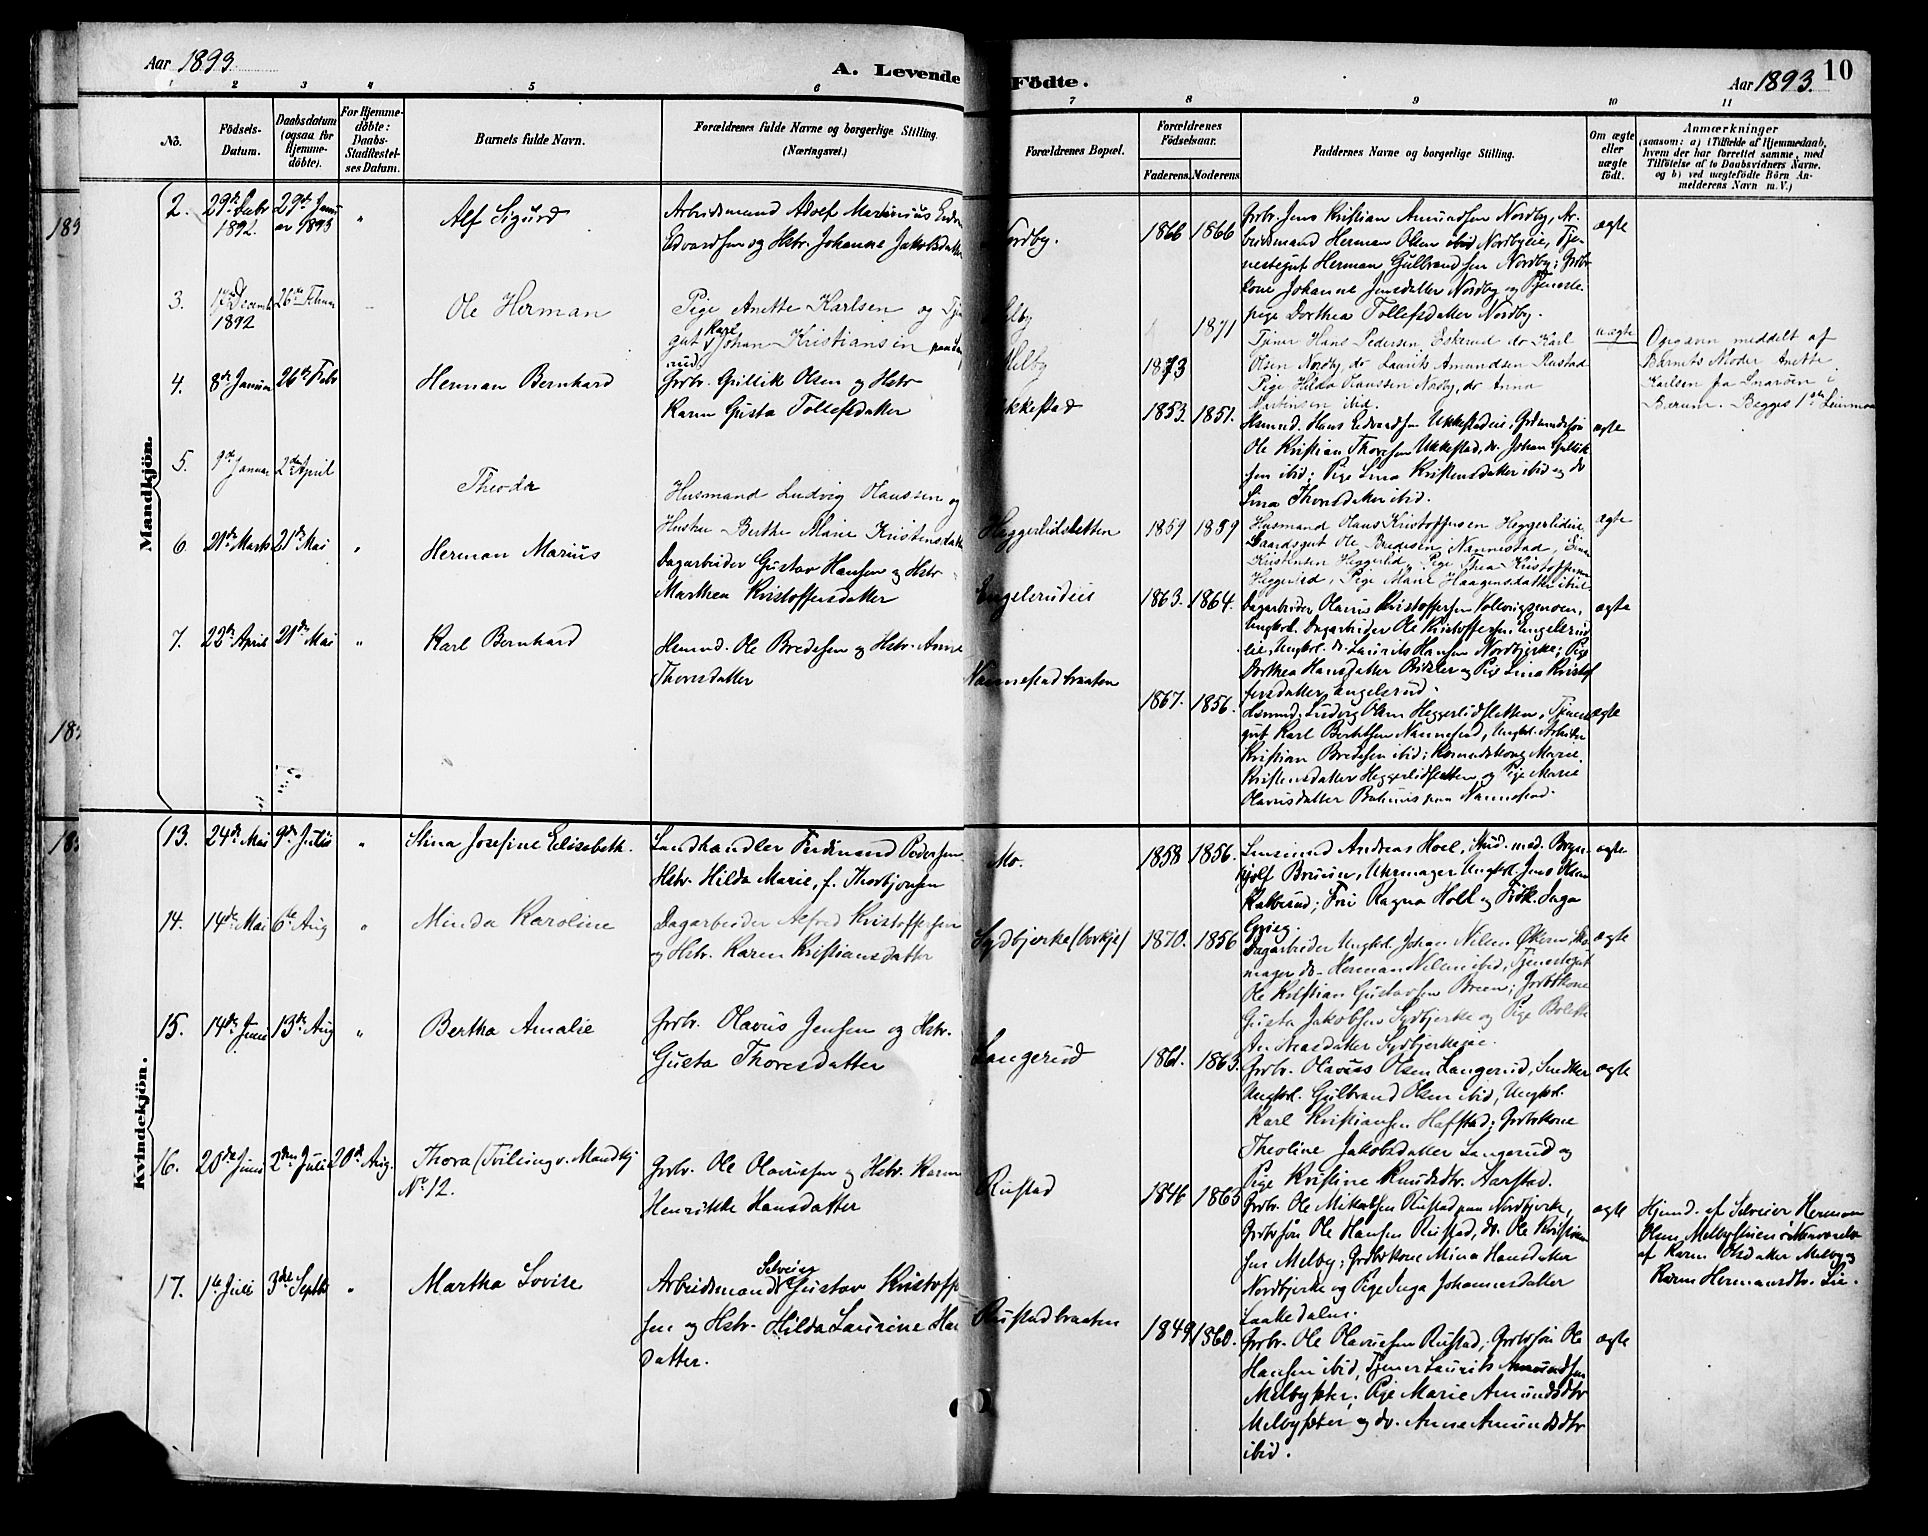 Aar 1893
A. Levende Födte.
Aar 1893.
10
1 2 3 4 5 6 7 8 9 10 11
No.
Födsels-
Datum.
Daabsdatum
(ogsaa for
Hjemme-
döbte).
For Hjemme-
döbte:
Daabs-
Stadfæstel-
ses Datum.
Barnets fulde Navn.
Forældrenes fulde Navne og borgerlige Stilling.
(Næringsvei.)
Forældrenes Bopæl.
Forældrenes
Födselsaar.
Faderens. Moderens.
Faddernes Navne og borgerlige Stilling.
Om ægte
eller
uægte
födt.
Anmærkninger
(saasom: a) i Tilfælde af Hjemmedaab,
hvem der har forrettet samme, med
Tilföielse af to Daabsvidners Navne,
og b) ved uægtefödte Börn An-
melderens Navn m. V.)
Mandkjön.
2.
29de Decbr
1892.
29de Janu
ar 1893
"
Alf Sigurd
Arbeidsmand Adolf Marinius
Edvardsen og Hstr. Johanne Jakobsdatter
Nordby.
1866 1866
Grbr. Jens Kristian Amundsen Nordby, Ar-
beidsmand Herman Olsen Nordbyeie, Tje-
nestegut Herman Gulbrandsen Nordby; Grbr-
kone Johanne Jensdatter Nordby og Tjeneste-
pige Dorthea Tollefsdatter Nordby.
ægte
3.
1892
26de Februar
Ole Herman
Pige Anette Karlsen og
gut Karl Johan Kristiansen
Melby
1871
1873
Tjener Hans Pedersen, Eskerud do Karl
Olsen Nordby do Laurits Amundsen Rustad
Pige Hilda Klaussen Nordby, do Anna
Martinsen ibid.
uægte
Opgaven meddelt af
Barnets Moder Anette
Karlsen fra Snarøen i
Bærum. Begges 1ste Leiermaal
4.
8de Januar
26de Febr
Herman Bernhard
Grbr. Gullik Olsen og Hstr
Karen Gusta Tollefsdatter
Ukkestad
1853. 1851.
Hsmnd. Hans Edvardsen Ukkestadeie, Grdmndssön
Ole Kristian Thoresen Ukkestad, do. Johan Gullik-
sen ibid; Pige Lina Kristensdatter ibid og do
Lina Thorsdatter ibid.
ægte
5.
9de Januar
2den April
Theodor
Husmand Ludvig Olaussen og
Hustru Berthe Marie Kristensdatter
Heggerlidsletten
1859 1859
Husmand Olaus Kristoffersen Heggerlideie,
Gaardsgut Ole Bredesen, Nannestad, Einar
Kristensen Heggerlid, Pige Thea Kristoffersen
Heggerlid, Pige Marie Haagensdatter ibid
ægte
6.
21de Marts
21de Mai
"
Herman Marius
Dagarbeider Gustav Hansen og Hstr
Marthea Kristoffersdatter
Engelerudeie
1863. 1864.
Dagarbeider Olavus Kristoffersen
Ungkrl. Dagarbeider Ole Kristoffersen Engelsrud-
eie, Ungkrl. do Laurits Hansen Nordbjerke; Pige
Dorthea Hansdatter Bidler og Pige Lina Kristof-
fersdatter, Engelsrud.
ægte
7.
22de April
21de Mai
"
Karl Bernhard
Hsmnd. Ole Bredesen og Hstr. Anne
Thorsdatter
Nannestadbraaten
1867. 1856.
Hsmnd. Ludvig Olsen Heggerlidsletten, Tjeneste-
gut Karl Bertelsen Nannestad, Ungkrl. Arbeider
Kristian Bredesen ibid; Hsmandskone Marie
Kristensdatter Heggerlidsletten og Pige Marie
Olavusdatter Nannestad.
ægte
Kvindekjön.
13.
24de Mai
9de Juli
"
Stina Josefine Elisabeth.
Landhandler Ferdinand Pedersen
Hstr. Hilda Marie, f. Thorbjörnsen
Mo.
1858 1856.
Lensmand Andreas Hoel, Stud. med. Bryn-
jolf Bruun, Uhrmager Ungkrl. Jens Olsen
Kalbrud; Fru Ragna Hoel og Frk. Inga
Grieg.
ægte
14.
14de Mai
6te Aug
"
Minda Karoline
Dagarbeider Alfred Kristoffersen
og Hstr. Karen Kristiansdatter
Sydbjerke (verkje)
1870. 1856
Dagarbeider Ungkrl. Johan Nilsen Økern, Sko-
mager do- Herman Nilsen ibid, Tjenestegut
Ole Kristian Gustavsen Breen; Grbrkone
Gusta Jakobsen Sydbjerke og Pige Bolette
Andreasdatter Sydbjerkeeie.
ægte
15.
14de Juni
13de Aug
"
Bertha Amalie
Grbr. Olavus Jensen og Hstr.
Gusta Thoresdatter
Langerud
1861. 1863.
Grbr. Olavus Olsen Langerud, Snedker
Ungkrl. Gulbrand Olsen ibid, Ungkrl.
Karl Kristiansen Hafstad; Grbrkone
Theoline Jakobsdatter Langerud og
Pige Kristine Knudsdtr. Aarstad.
ægte
16.
20de Juni
2den Juli
20de Aug.
Thora (Tvilling v. Mandkj
No 12.
Grbr. Ole Olavussen og Hstr. Karen
Henrikke Hansdatter
Rustad
1846 1865
Grbr. Ole Mikelsen Rustad paa Nordbjerke,
Grbrsön Ole Hansen Rustad, do. Ole Kristian-
sen Melby; Grbrkone Mina Hansdatter
Nordbjerke og Pige Inga Johannesdatter
Laakedalen.
ægte
Hjemd. af Selveier Herman
Olsen Melbystuen i Nærværelse
af Karen Olsdatter Melby og
Karen Hermansdtr. Lie.
17.
1ste Juli
3die Septbr
"
Martha Lovise
Arbeidsmand Selveier Gustav Kristoffer-
sen og Hstr. Hilda Laurine Hans
datter.
Rustadbraaten
1849 1860.
Grbr. Ole Olavussen Rustad, Grbrsön Ole
Hansen ibid, Tjener Laurits Amundsen
Melbysæter; Pige Marie Amundsdtr
Melbysæter og do. Anna Amundsdtr
ibid.
ægte